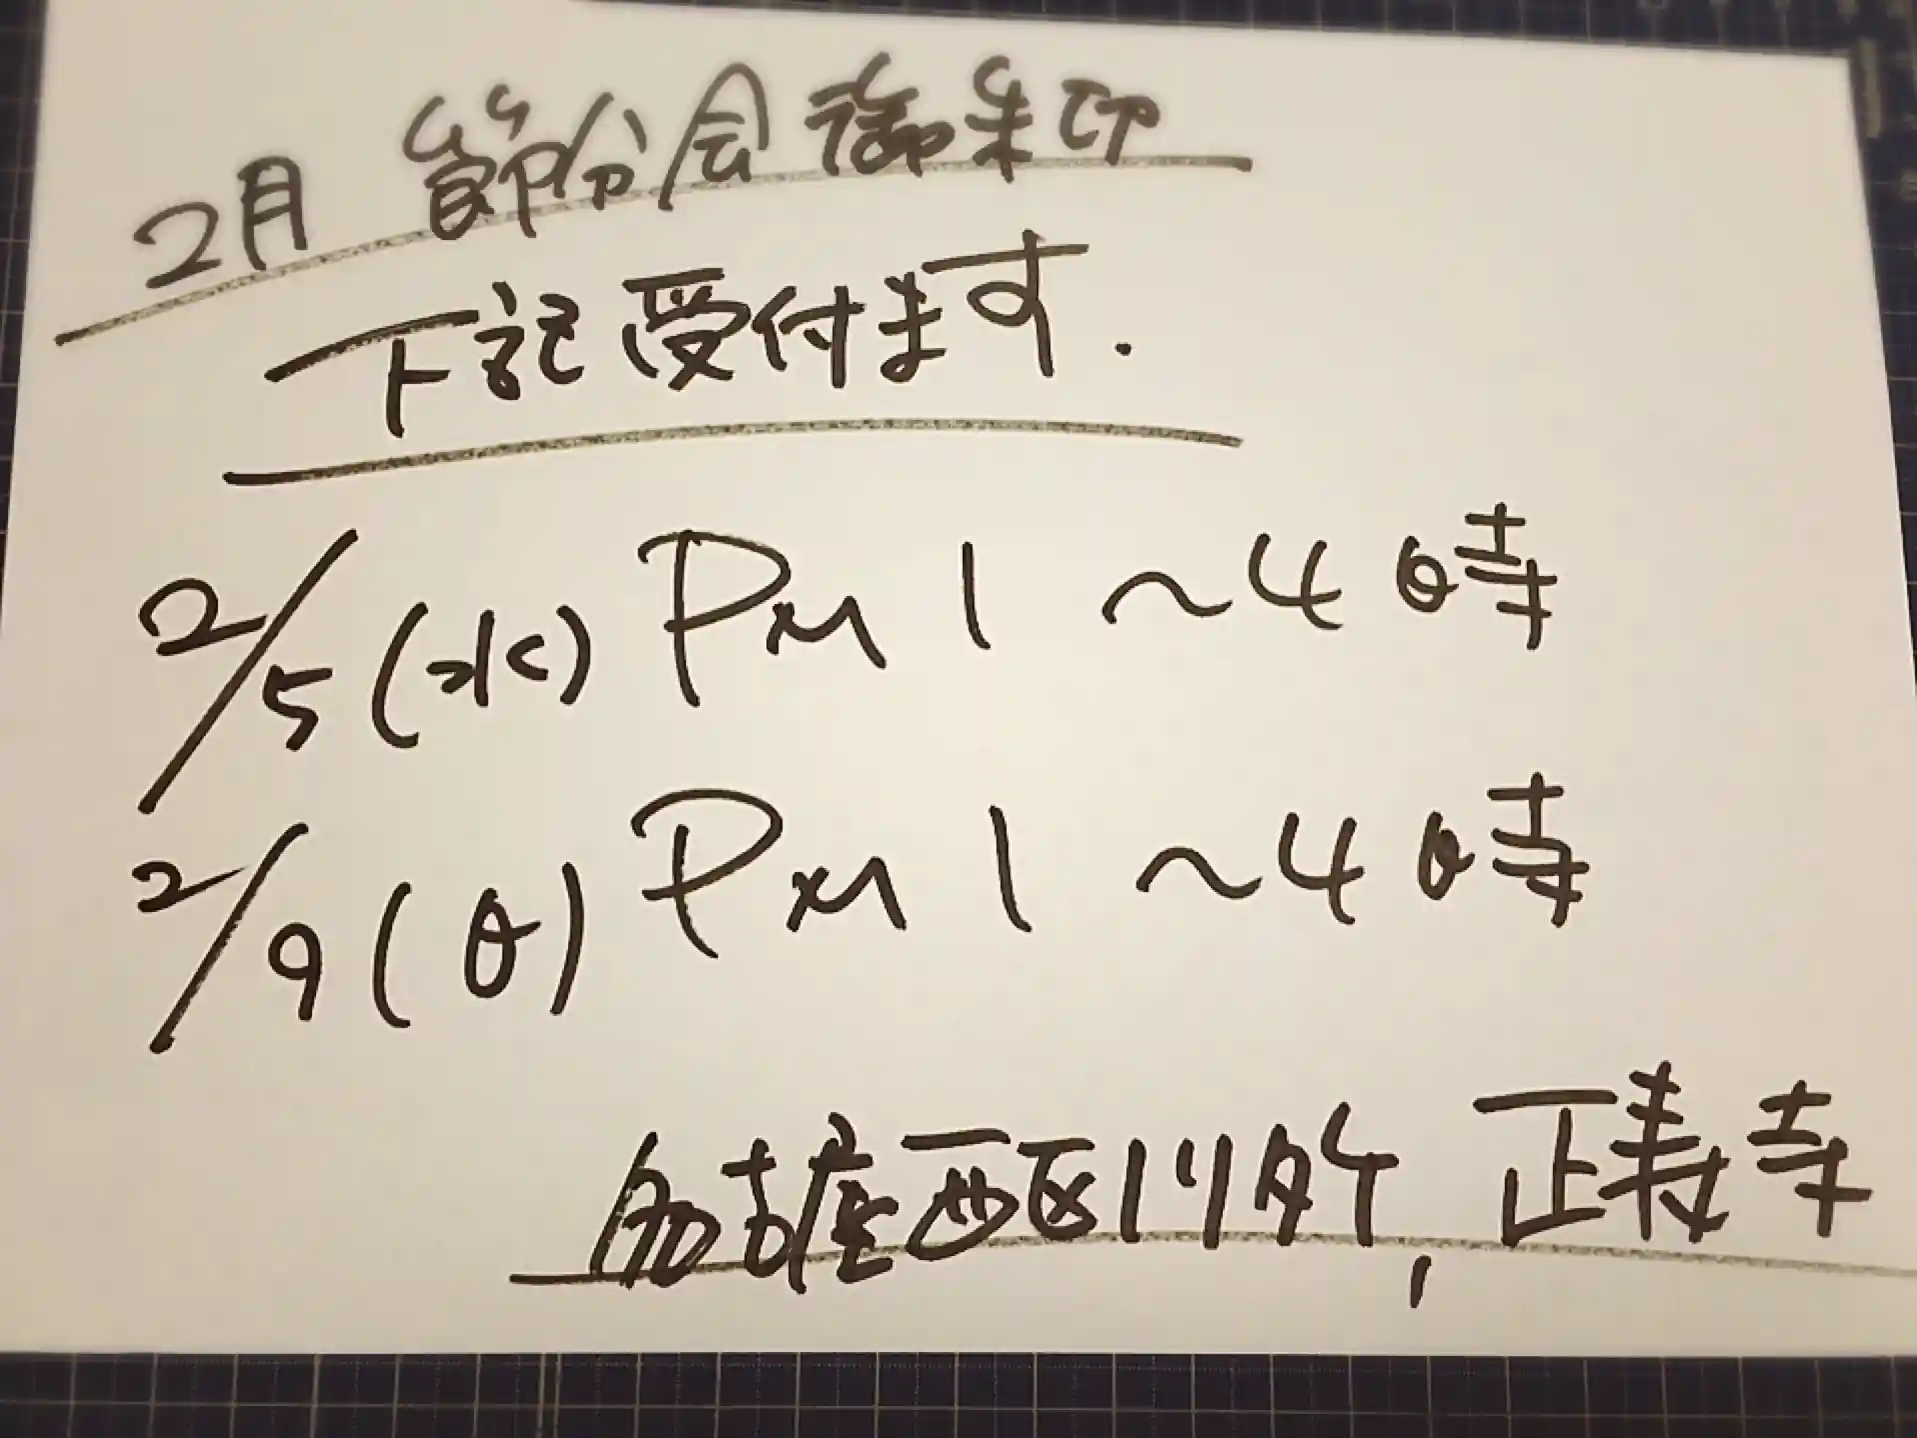 2月 節分会御朱印
下記受付ます.
2/5(水) PM 1 ~4時
2/9(日) PM 1 ~4時
名古屋西区